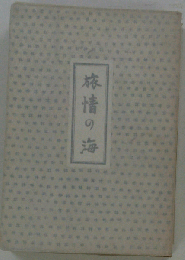 旅情の海